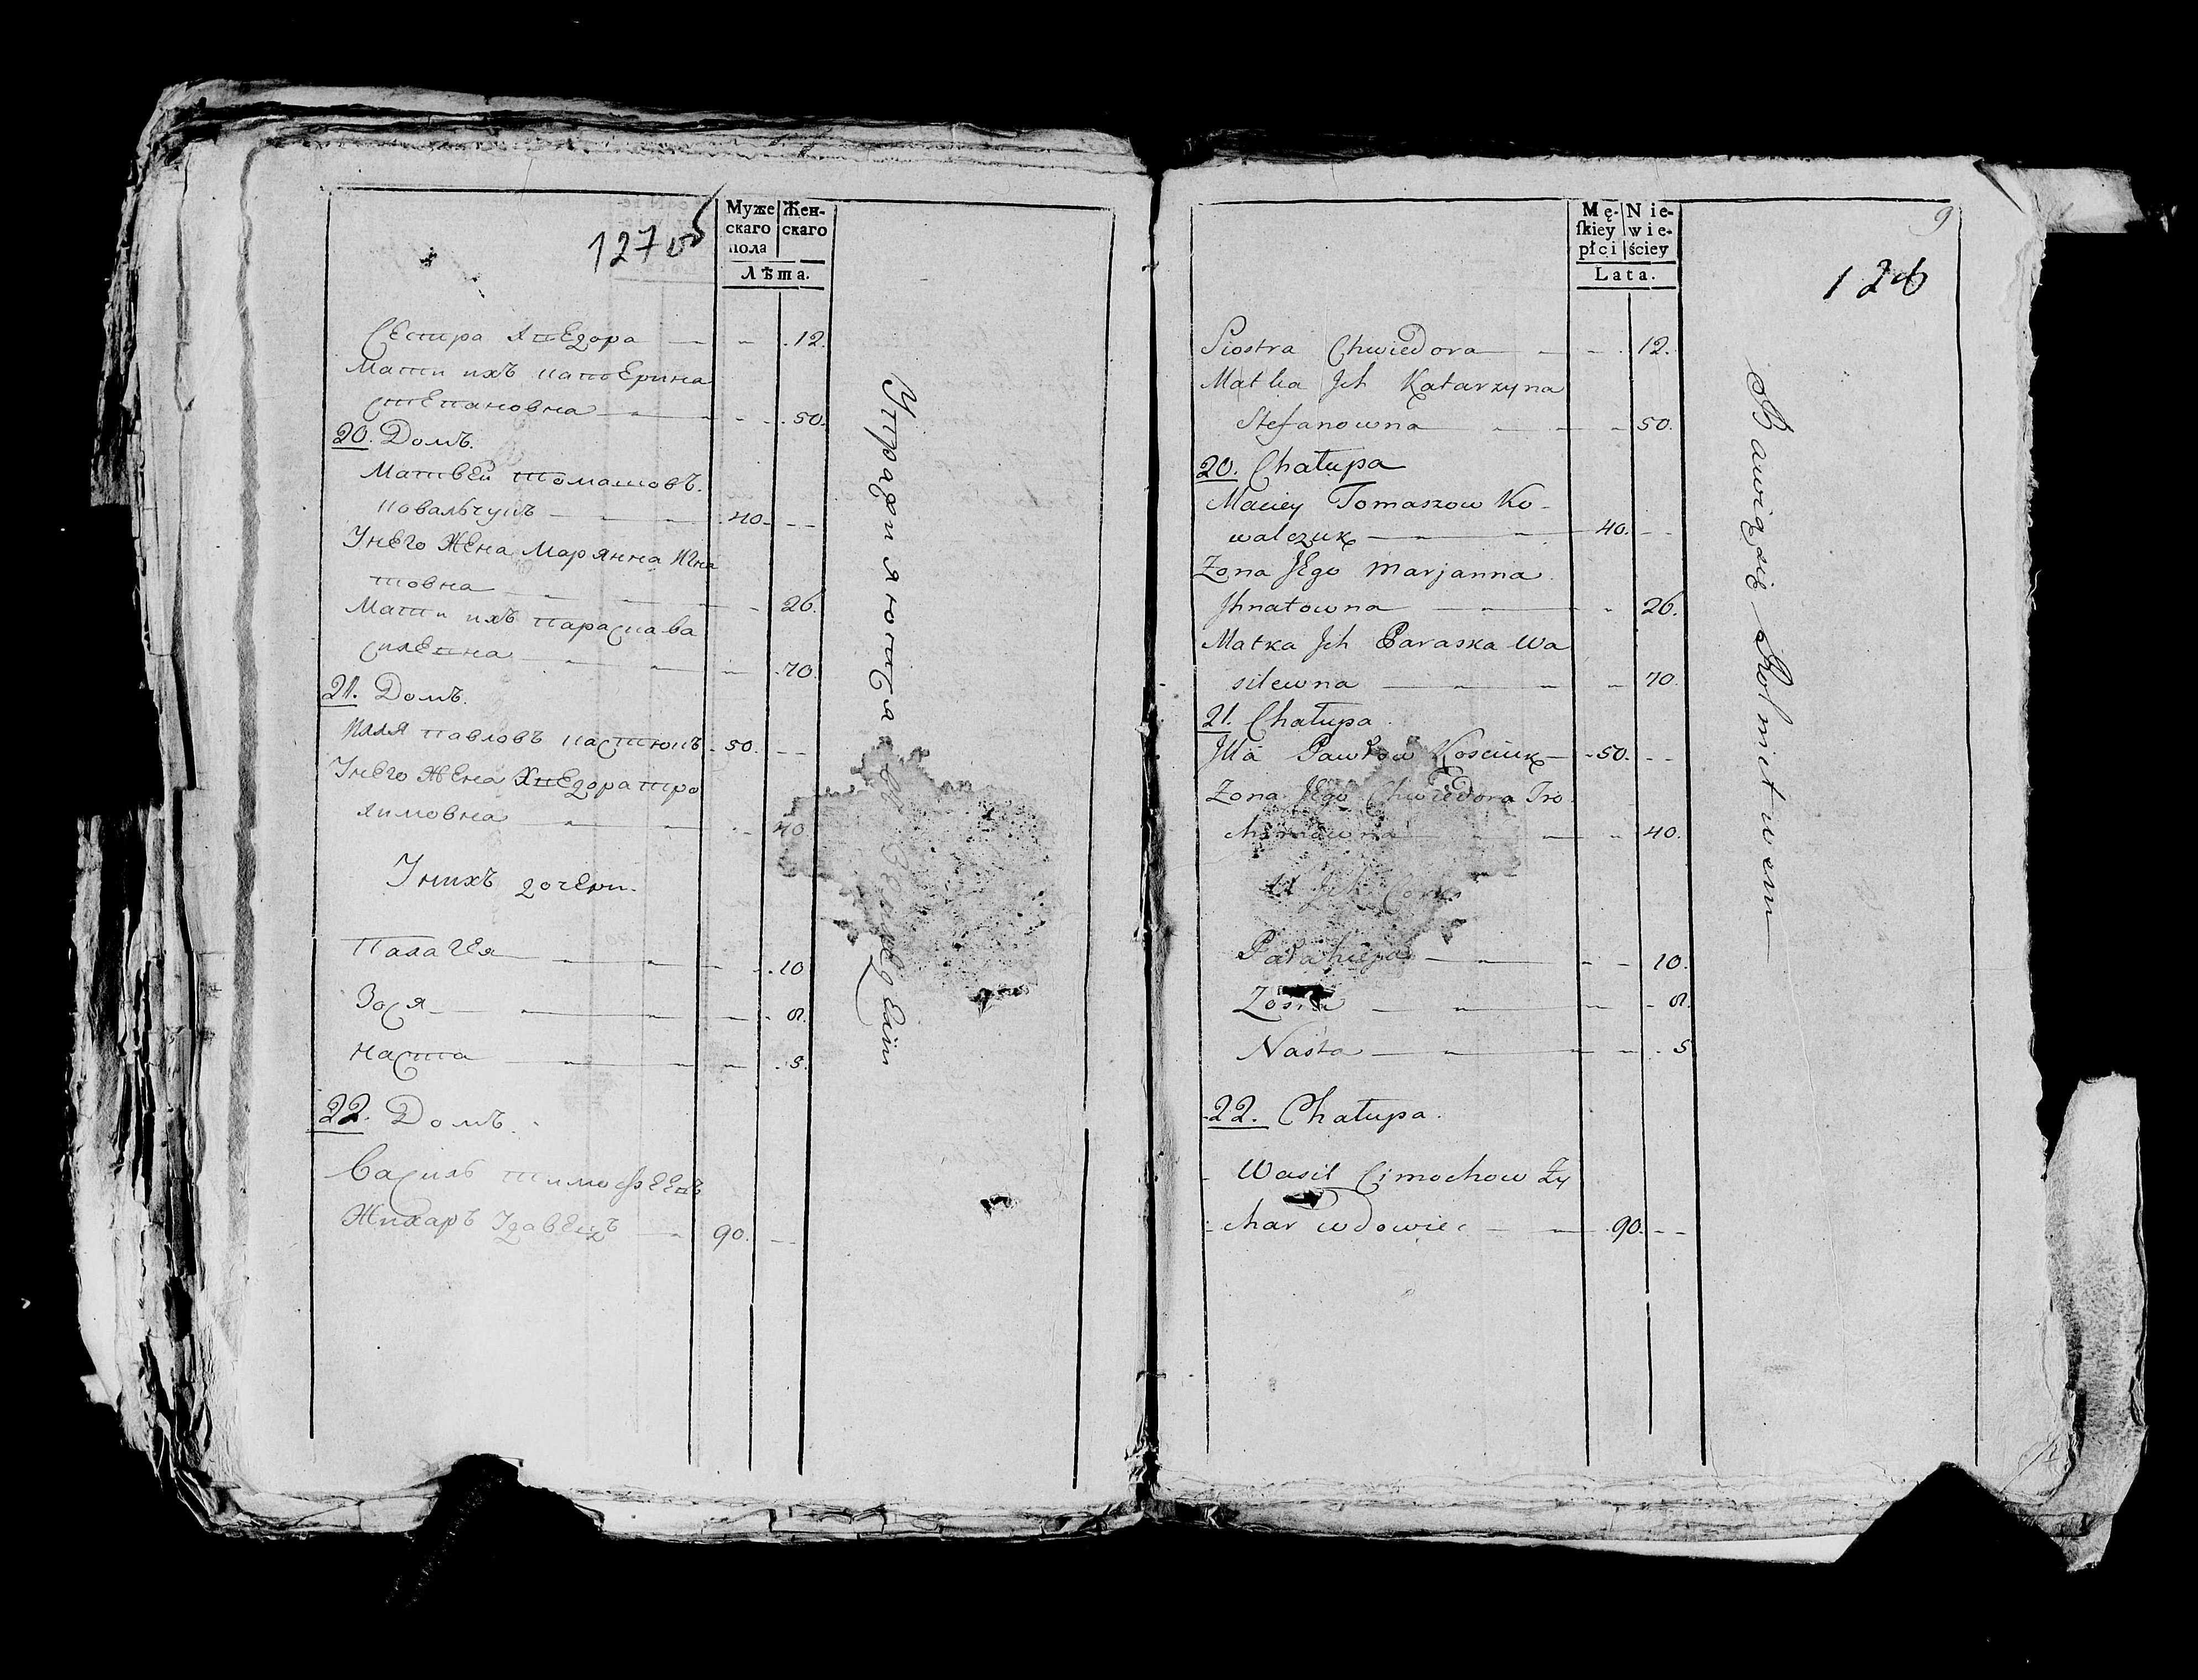 127 об
Муже
скаго
пола
Жен-
скаго
Лѣта.
Сестра Хведора — — „ — .12.
Мати ихъ Катерина
Степановна — — „ - . .50.
20. Домъ.
Матвей Томашовъ
Ковальчукъ — — — .40. - -
Унего Жена Марянна Игна
товна — — — „ 26.
Мати ихъ Параска Ва
силевна — „ — „ .70.
21. Домъ.
Илля Павловъ Костюкъ - 50. - -
Унего Жена Хведора Тро
химовна — „ — „ - 40
Унихъ дочери.
Палагея — „ — „ — „ - .10
Зося — — „ — „ - 8.
Наста — „ — „ — „ . 5.
22. Домъ.
Василь Тимофеевъ
Жихаръ Удавецъ — 90. - -
Упражняются
Mę-
ſkiey
płci
Nie-
wie-
ściey
Lata.
9
126
Siostra Chwiedora — „ — „ . 12.
Matka Jch Katarzyna
Stefanowna — „ — „ 50.
20. Chałupa
Maciey Tomaszow Ko-
walczuk — „ — 40. - -
Zona JEgo Marjanna
Jhnatowna — — „ 26.
Matka Jch Paraska Wa
silewna — „ — „ 70.
21. Chałupa.
Jlla Pawłow Kosciuk — - 50. - -
Zona JEgo Chwiedora Tro
chimowna — „ 40.
U Jch Corki
Pałahieja — „ — „ — 10.
Zosia — „ — „ — - 8.
Nasta — „ — „ — . 5
22. Chałupa.
Wasil Cimochow Zy
char wdowiec — „ — .90. - -
Bawią się Rolnictwem